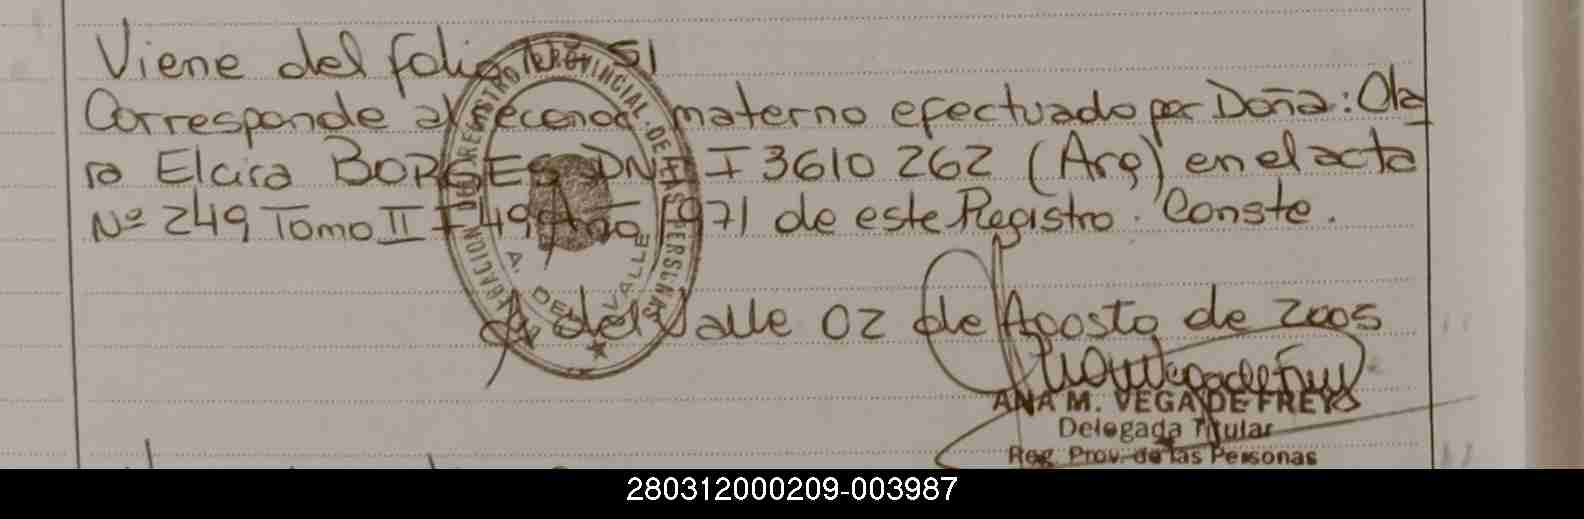 Viene del folio Nº 51
Corresponde al reconoc. materno efectuado por Doña: Cla
ra Elcira BORGES DNI I 3610 262 (Arg) en el acta
Nº 249 Tomo II F 49 Año 1971 de este Registro. Conste.
A. del Valle 02 de Agosto de 2005
REGISTRO PROVINCIAL DE LAS PERSONAS
A. DEL VALLE
ANA M. VEGA DE FREY
Delegada Titular
Reg. Prov. de las Personas
280312000209-003987